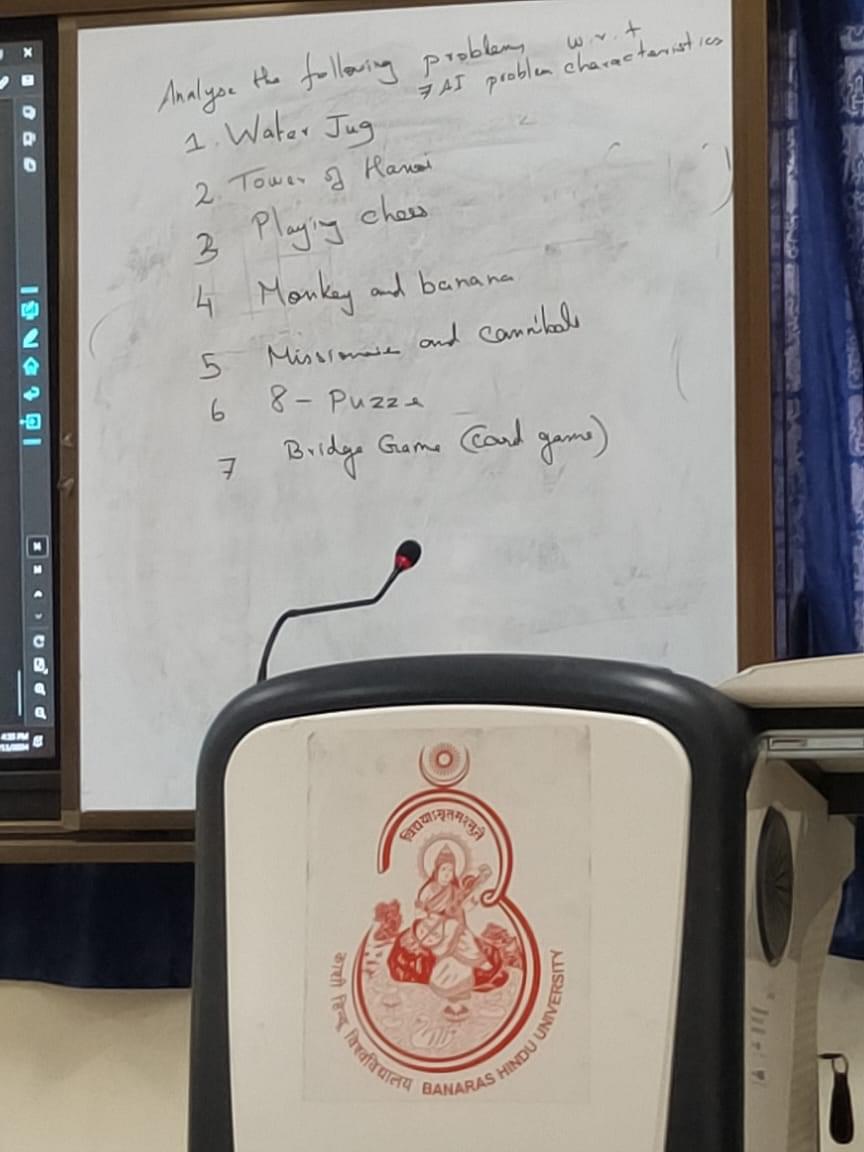 Analyse the following problems w.r.t
7 AI problem characteristics
1. Water Jug
2. Tower of Hanoi
3 Playing chess
4 Monkey and banana
5 Missionaie and Cannibals
6 8 - Puzzle
7 Bridge Game (Card game)
विद्ययाऽमृतमश्नुते
काशी हिन्दू विश्वविद्यालय BANARAS HINDU UNIVERSITY